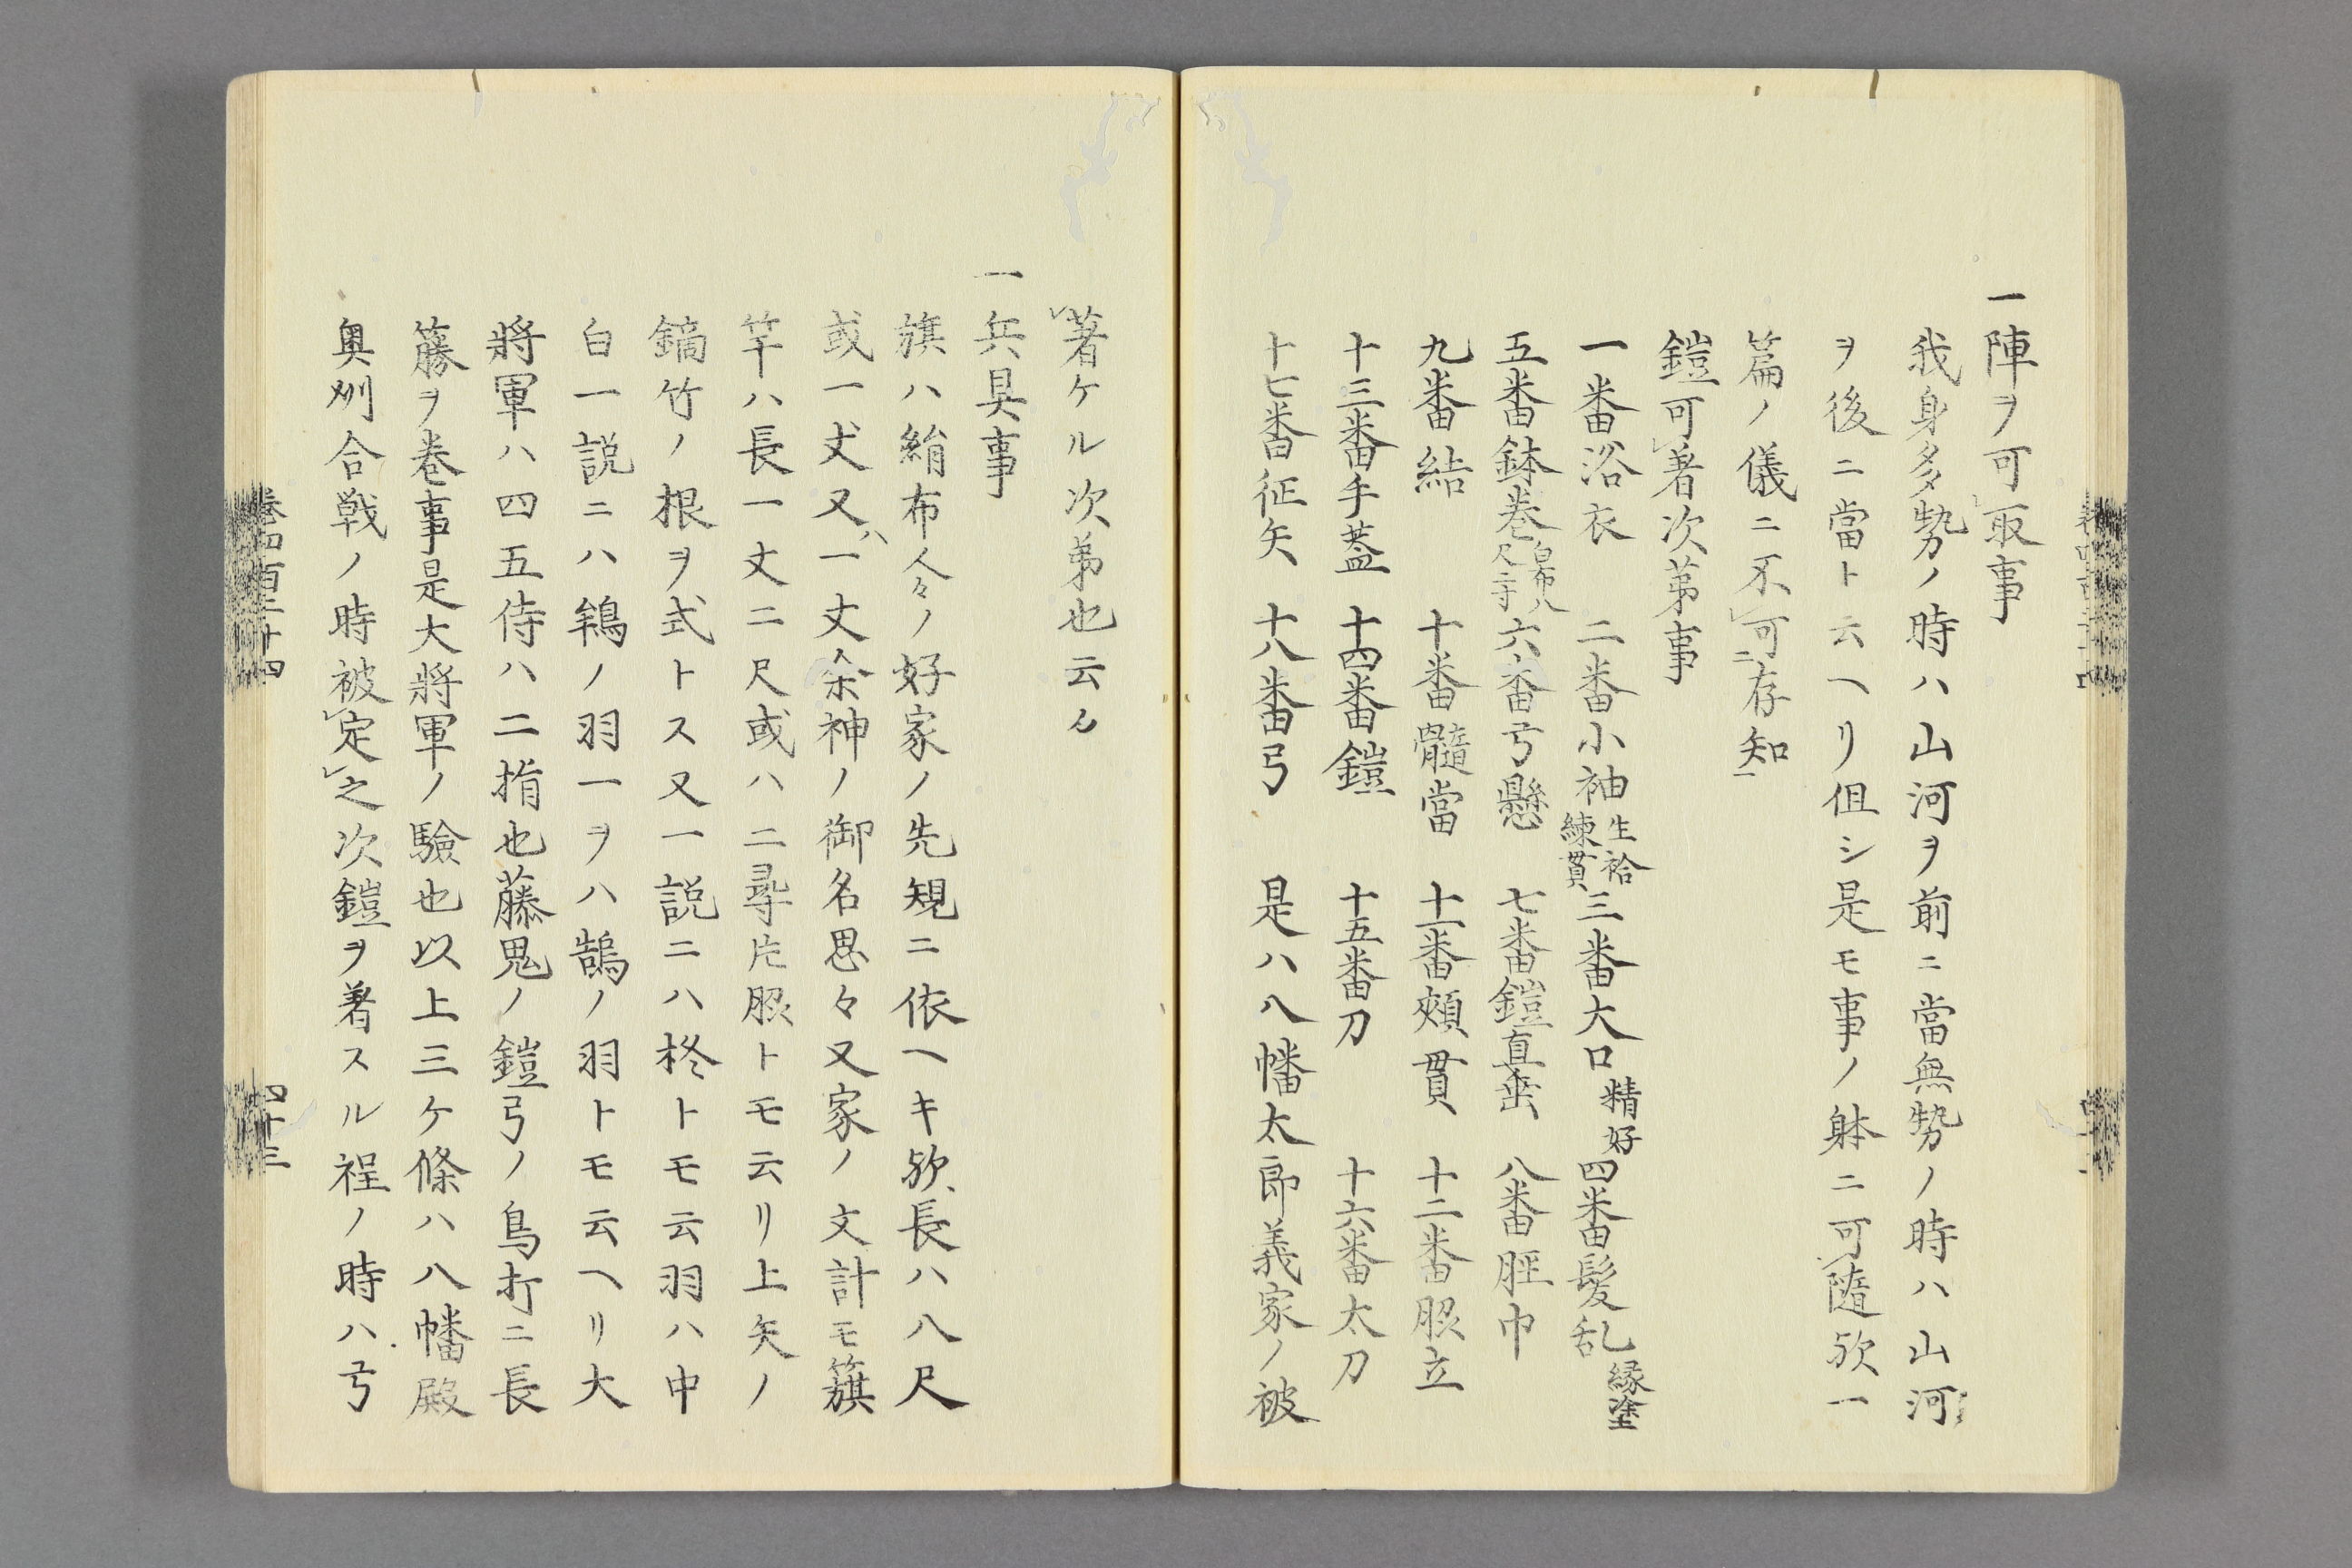 一陣ヲ可㆑取事
我身多勢ノ時ハ山河ヲ前ニ當無勢ノ時ハ山河
ヲ後ニ當ト云ヘリ但シ是モ事ノ躰ニ可㆑隨欤一
篇ノ儀ニ不㆑可㆓存知㆒
鎧可㆑著次第事
一番浴衣 二番小袖生袷練貫三番大口精好四番髪乱縁塗
五番鉢巻白布八尺二寸六番弓懸 七番鎧直垂 八番脛巾
九番結 十番髓當 十一番頰貫 十二番脵立
十三番手蓋 十四番鎧 十五番刀 十六番太刀
十七番征矢 十八番弓 是ハ八幡太郎義家ノ被
㆑著ケル次第也云々
一兵具事
旗ハ絹布人々ノ好家ノ先規ニ依ヘキ欤長ハ八尺
或一丈又ハ一丈余神ノ御名思々又家ノ文計モ籏
竿ハ長一丈二尺或ハ二尋片脵トモ云リ上矢ノ
鏑竹ノ根ヲ式トス又一説ニハ柊トモ云羽ハ中
白一説ニハ鵇ノ羽一ヲハ鵠ノ羽トモ云ヘリ大
將軍ハ四五侍ハ二揹也藤鬼ノ鎧弓ノ鳥打ニ長
籐ヲ巻事是大將軍ノ驗也以上三ケ條ハ八幡殿
奥州合戦ノ時被㆑定㆑之次鎧ヲ著スル程ノ時ハ弓
巻四百二十四
四十三